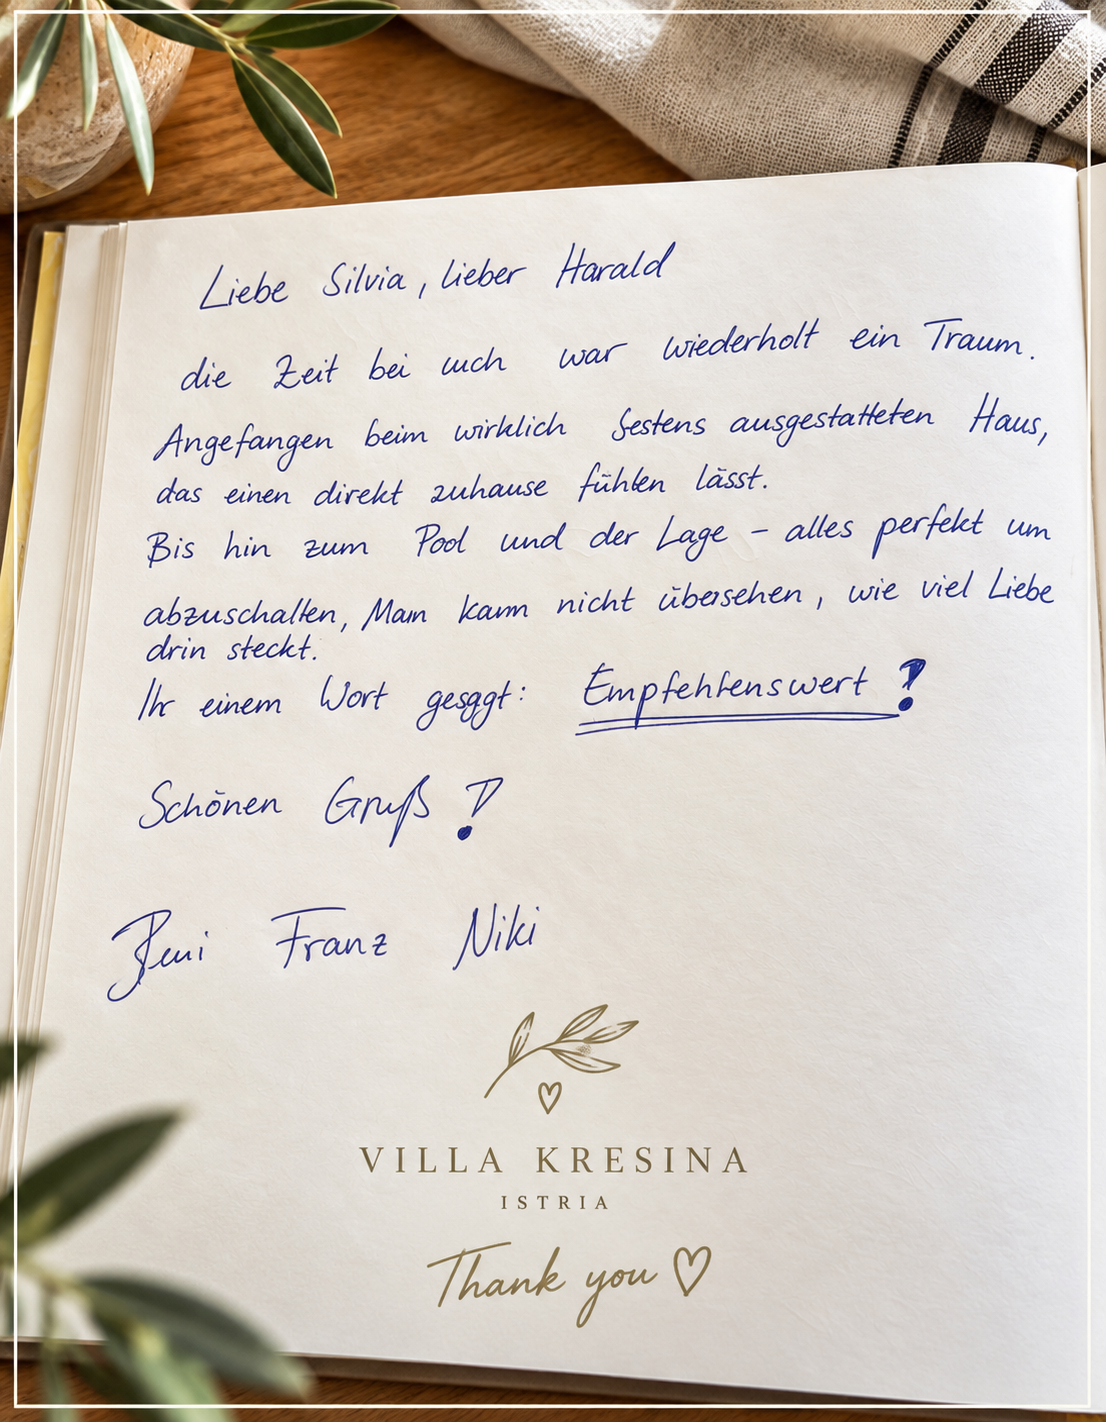 Liebe Silvia, lieber Harald
die Zeit bei euch war wiederholt ein Traum.
Angefangen beim wirklich bestens ausgestatteten Haus,
das einen direkt zuhause fühlen lässt.
Bis hin zum Pool und der Lage – alles perfekt um
abzuschalten, Man kann nicht übersehen, wie viel Liebe
drin steckt.
einem Wort gesagt: Empfehlenswert!
Schönen Gruß!
Franz Niki
VILLA KRESINA
ISTRIA
Thank you ♡